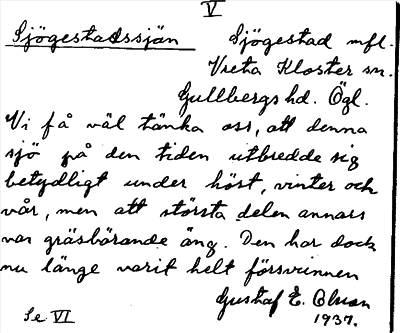 V
Sjögestadssjön Sjögestad mfl.
Vreta Kloster sn.
Gullbergs hd. Ögl.
Vi få väl tänka oss, att denna
sjö på den tiden utbredde sig
betydligt under höst, vinter och
vår, men att största delen annars
var gräsbärande äng. Den har dock
nu länge varit helt försvunnen
Gustaf E. Olsson
Se VI 1937.